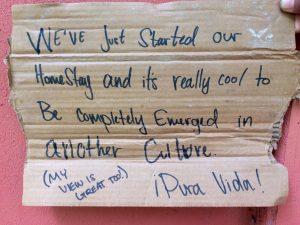 WE'VE Just Started our
HomeStay and its really cool to
Be completely Emerged in
another Culture.
(MY
VIEW IS
GREAT TOO!)
¡Pura Vida!